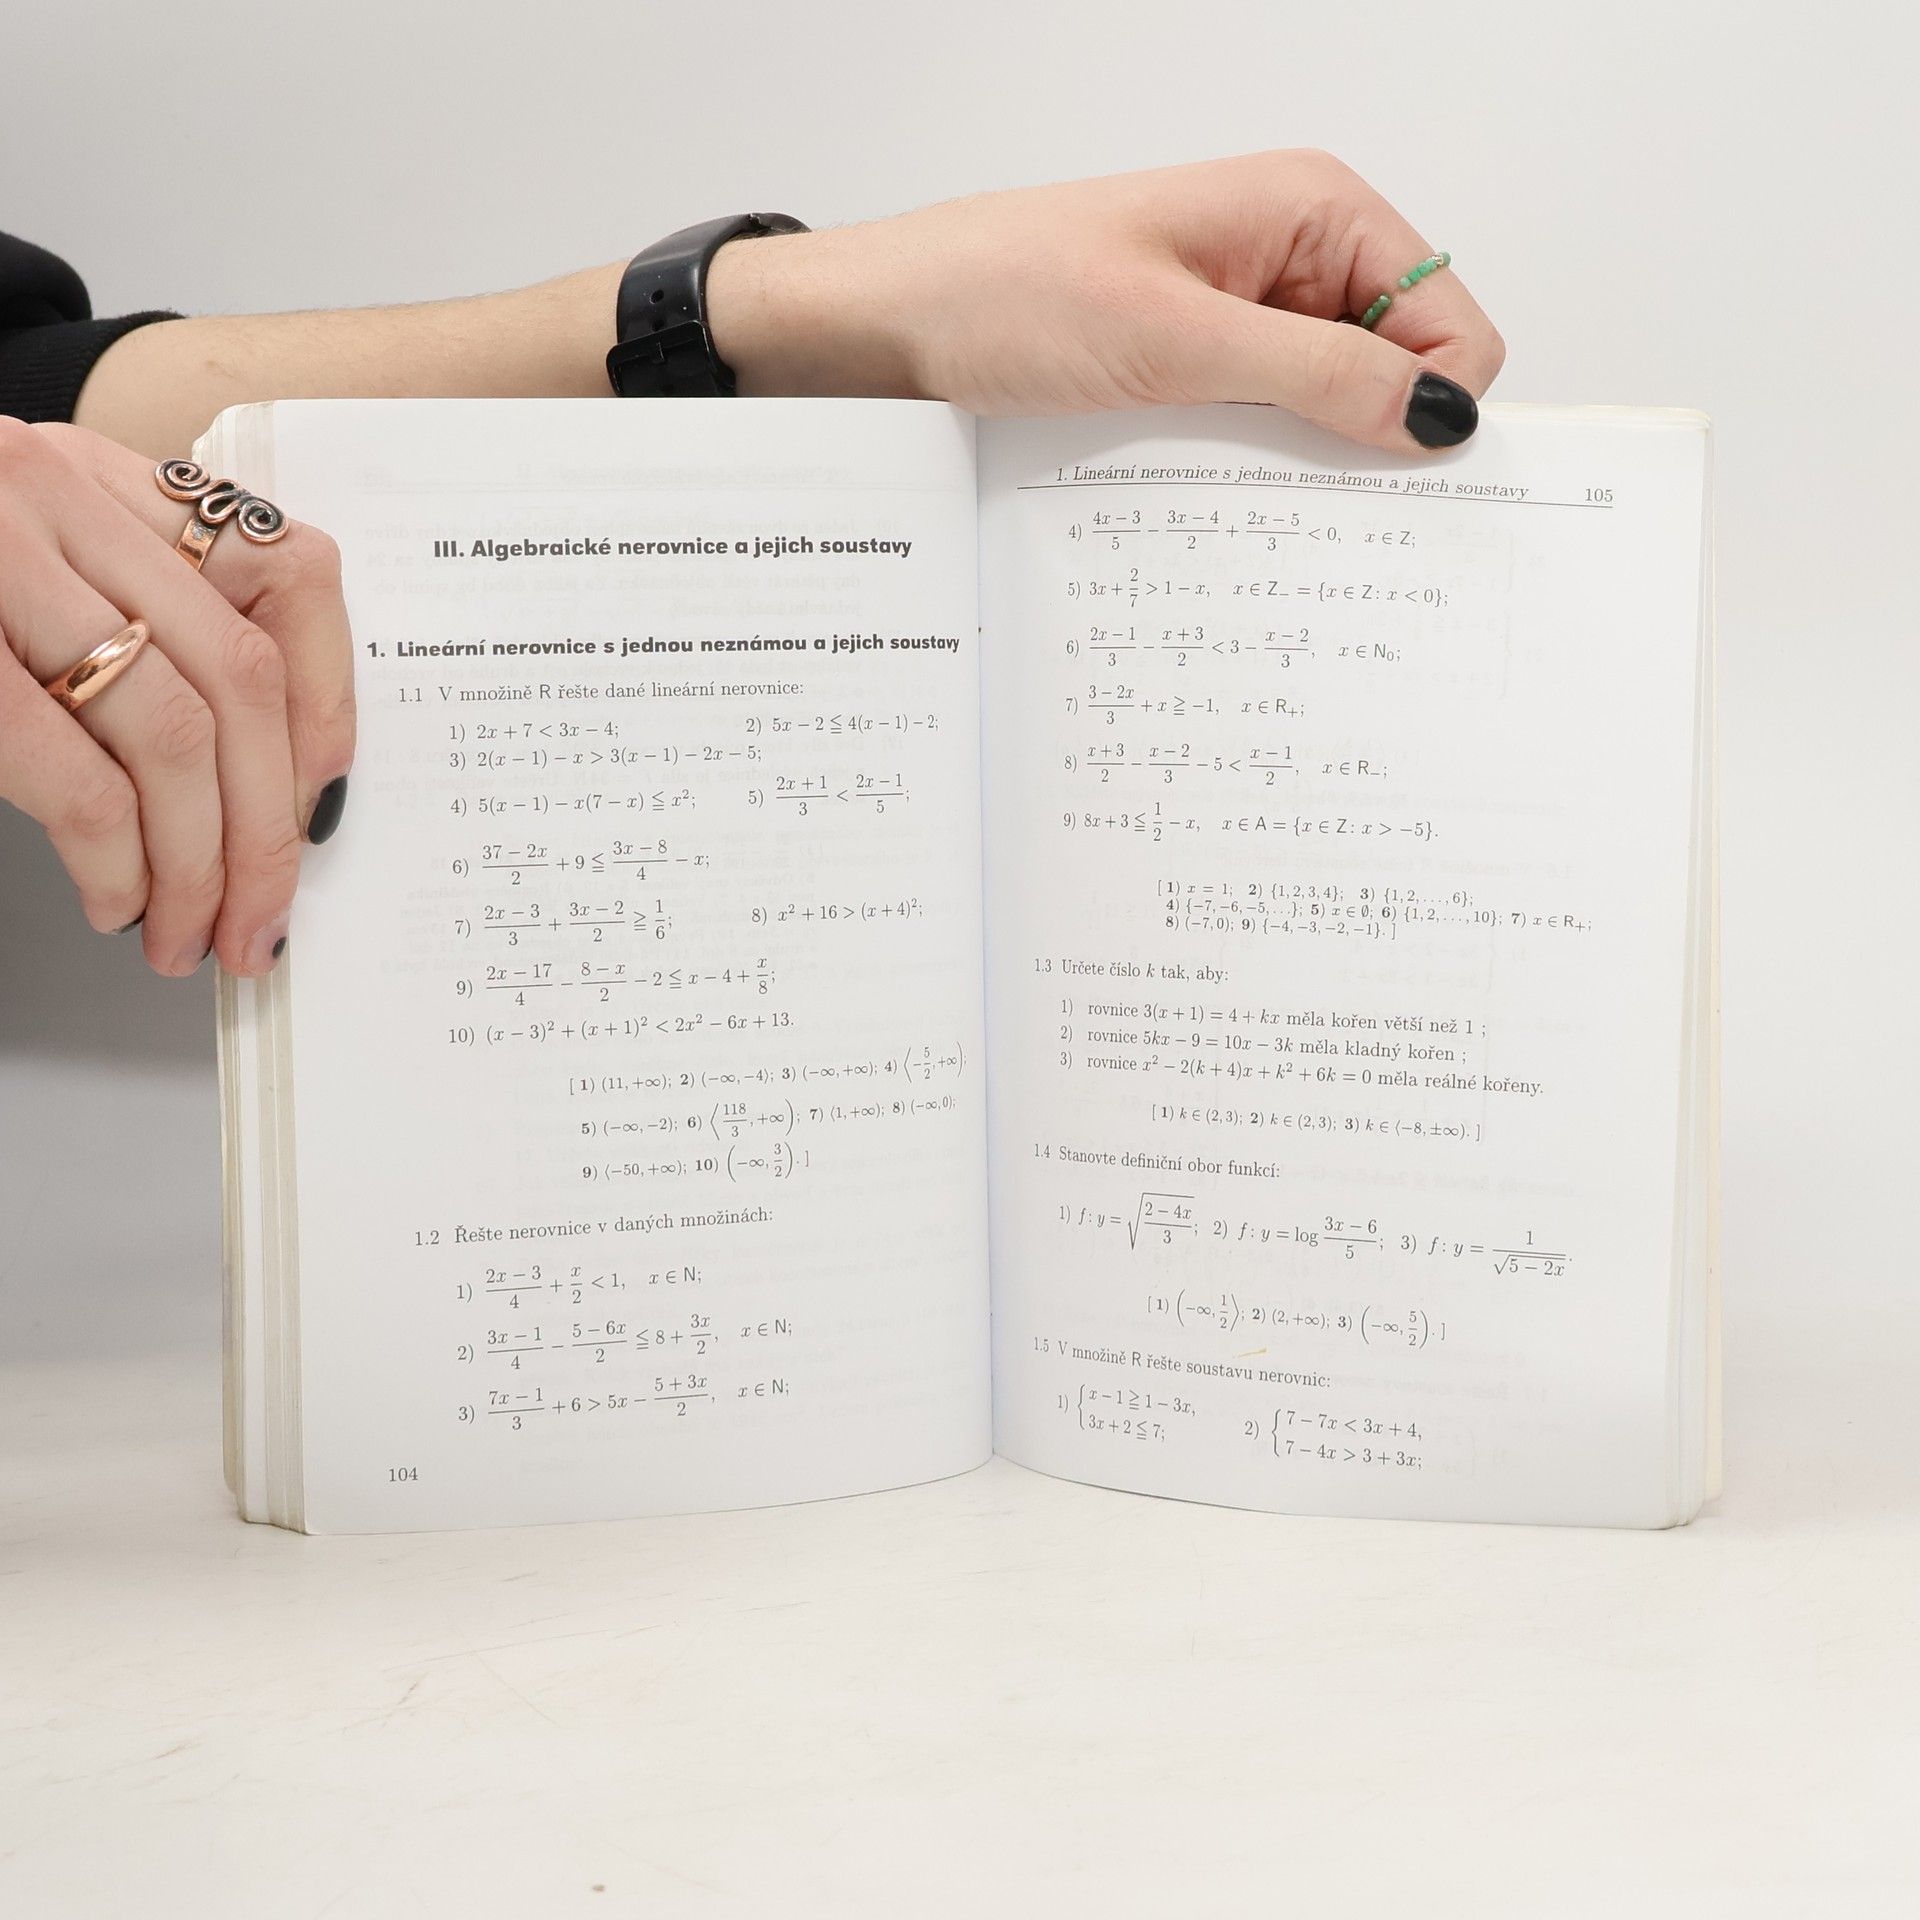 III. Algebraické nerovnice a jejich soustavy
1. Lineární nerovnice s jednou neznámou a jejich soustavy
1.1 V množině R řešte dané lineární nerovnice:
1) 2x + 7 < 3x − 4; 2) 5x − 2 ≦ 4(x − 1) − 2;
3) 2(x − 1) − x > 3(x − 1) − 2x − 5;
4) 5(x − 1) − x(7 − x) ≦ x²; 5) (2x + 1)/3 < (2x − 1)/5;
6) (37 − 2x)/2 + 9 ≦ (3x − 8)/4 − x;
7) (2x − 3)/3 + (3x − 2)/2 ≧ 1/6; 8) x² + 16 > (x + 4)²;
9) (2x − 17)/4 − (8 − x)/2 − 2 ≦ x − 4 + x/8;
10) (x − 3)² + (x + 1)² < 2x² − 6x + 13.
[ 1) (11, +∞); 2) (−∞, −4⟩; 3) (−∞, +∞); 4) ⟨−5/2, +∞);
5) (−∞, −2); 6) ⟨118/3, +∞); 7) ⟨1, +∞); 8) (−∞, 0);
9) ⟨−50, +∞); 10) (−∞, 3/2). ]
1.2 Řešte nerovnice v daných množinách:
1) (2x − 3)/4 + x/2 < 1, x ∈ N;
2) (3x − 1)/4 − (5 − 6x)/2 ≦ 8 + 3x/2, x ∈ N;
3) (7x − 1)/3 + 6 > 5x − (5 + 3x)/2, x ∈ N;
104
1. Lineární nerovnice s jednou neznámou a jejich soustavy 105
4) (4x − 3)/5 − (3x − 4)/2 + (2x − 5)/3 < 0, x ∈ Z;
5) 3x + 2/7 > 1 − x, x ∈ Z₋ = {x ∈ Z: x < 0};
6) (2x − 1)/3 − (x + 3)/2 < 3 − (x − 2)/3, x ∈ N₀;
7) (3 − 2x)/3 + x ≧ −1, x ∈ R₊;
8) (x + 3)/2 − (x − 2)/3 − 5 < (x − 1)/2, x ∈ R₋;
9) 8x + 3 ≦ 1/2 − x, x ∈ A = {x ∈ Z: x > −5}.
[ 1) x = 1; 2) {1, 2, 3, 4}; 3) {1, 2, …, 6};
4) {−7, −6, −5, …}; 5) x ∈ ∅; 6) {1, 2, …, 10}; 7) x ∈ R₊;
8) (−7, 0); 9) {−4, −3, −2, −1}. ]
1.3 Určete číslo k tak, aby:
1) rovnice 3(x + 1) = 4 + kx měla kořen větší než 1 ;
2) rovnice 5kx − 9 = 10x − 3k měla kladný kořen ;
3) rovnice x² − 2(k + 4)x + k² + 6k = 0 měla reálné kořeny.
[ 1) k ∈ (2, 3); 2) k ∈ (2, 3); 3) k ∈ ⟨−8, ±∞). ]
1.4 Stanovte definiční obor funkcí:
1) f: y = √((2 − 4x)/3); 2) f: y = log (3x − 6)/5; 3) f: y = 1/√(5 − 2x).
[ 1) (−∞, 1/2⟩; 2) (2, +∞); 3) (−∞, 5/2). ]
1.5 V množině R řešte soustavu nerovnic:
1) { x − 1 ≧ 1 − 3x, 2) { 7 − 7x < 3x + 4,
3x + 2 ≦ 7; 7 − 4x > 3 + 3x;